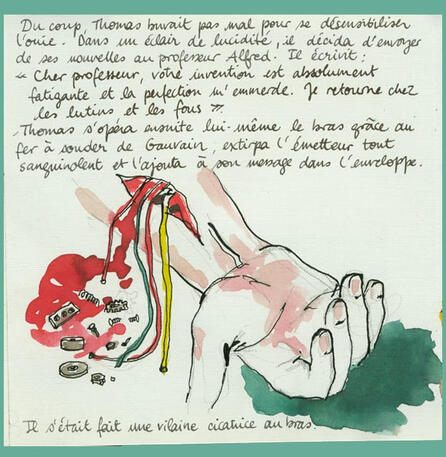 Du coup, Thomas buvait pas mal pour se désensibiliser
l'ouïe. Dans un éclair de lucidité, il décida d'envoyer
de ses nouvelles au professeur Alfred. Il écrivit :
« Cher professeur, votre invention est absolument
fatigante et la perfection m'emmerde. Je retourne chez
les lutins et les fous ».
Thomas s'opéra ensuite lui-même le bras grâce au
fer à souder de Gauvain, extirpa l'émetteur tout
sanguinolent et l'ajouta à son message dans l'enveloppe.
Il s'était fait une vilaine cicatrice au bras.